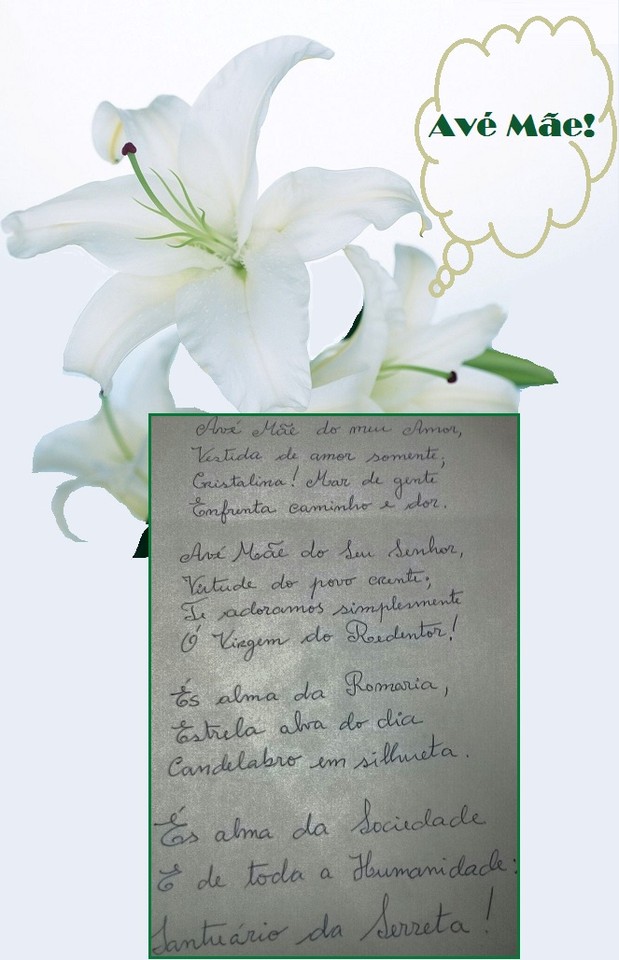 Avé Mãe!
Avé Mãe do meu Amor,
Vestida de amor somente;
Cristalina! Mar de gente
Enfrenta caminho e dor.
Avé Mãe do Seu Senhor,
Virtude do povo crente;
Te adoramos simplesmente
Ó Virgem do Redentor!
És alma da Romaria,
Estrela alva do dia
Candelabro em silhueta.
És alma da Sociedade
E de toda a Humanidade:
Santuário da Serreta!